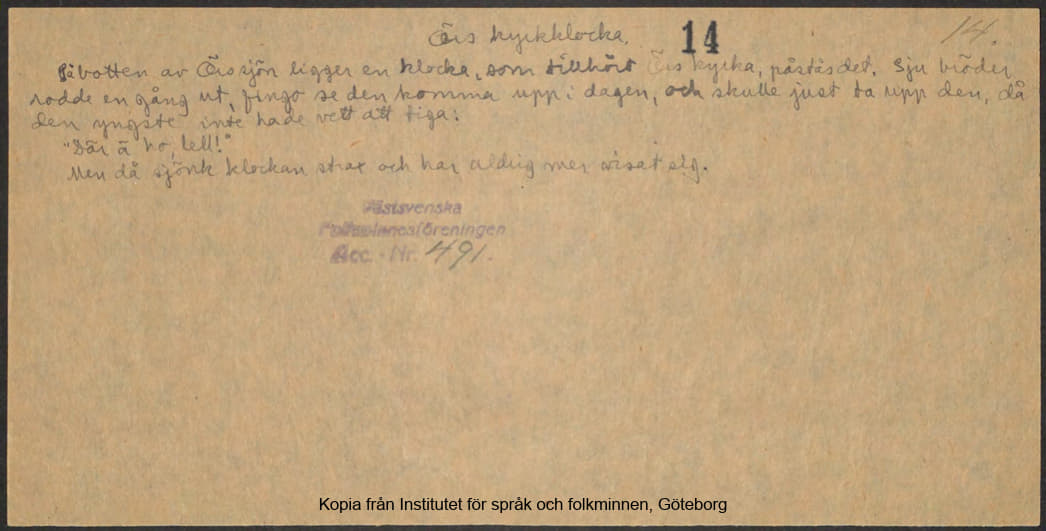 Örs kyrkklocka. 14 14.
På botten av Örssjön ligger en klocka, som tillhört Örs kyrka, påstås det. Sju bröder
rodde en gång ut, fingo se den komma upp i dagen, och skulle just ta upp den, då
den yngste inte hade vett att tiga:
"Där ä ho, lell!"
Men då sjönk klockan strax och har aldrig mer visat sig.
Västsvenska
Folkminnesföreningen
Acc. Nr. 491.
Kopia från Institutet för språk och folkminnen, Göteborg